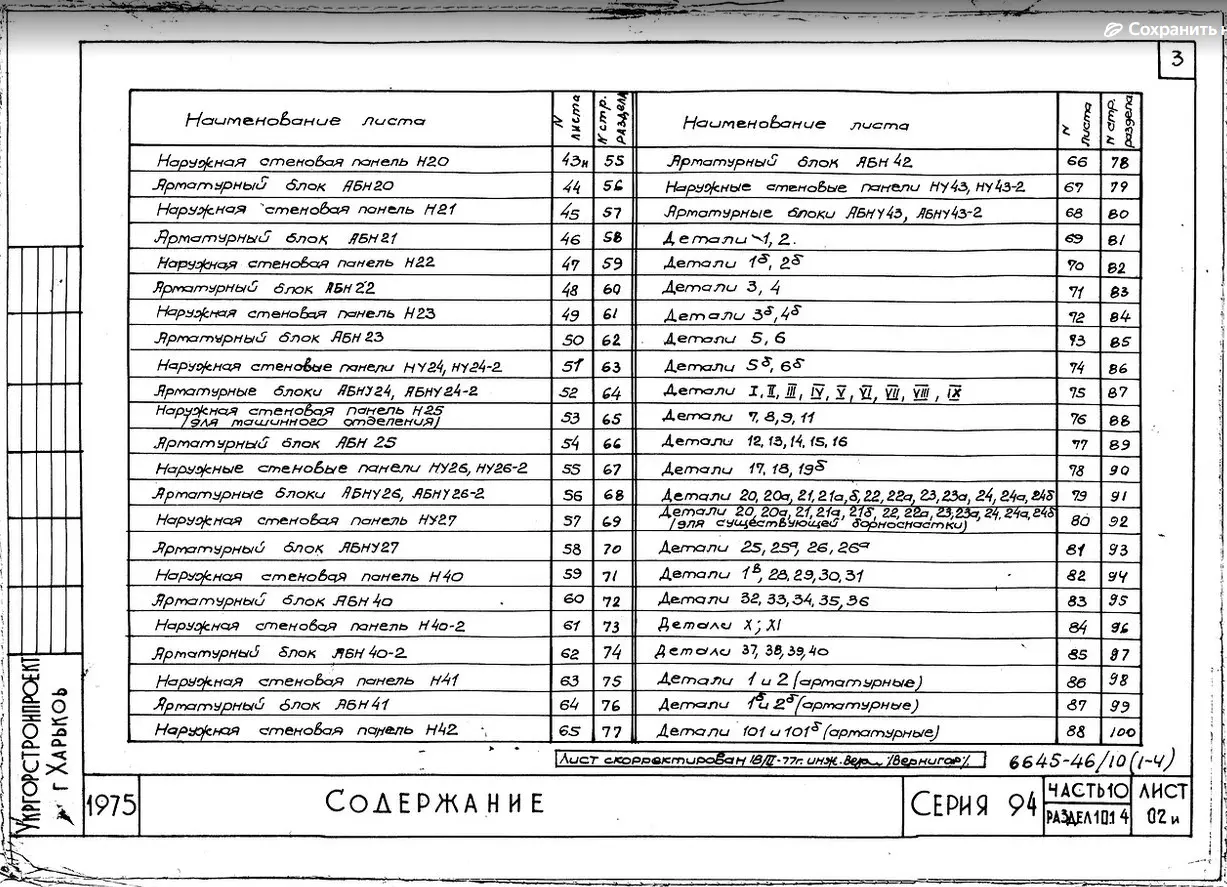 Сохранить
3
Наименование листа | N листа | N стр. раздела | Наименование листа | N листа | N стр. раздела
Наружная стеновая панель Н20 | 43н | 55 | Арматурный блок АБН 42 | 66 | 78
Арматурный блок АБН20 | 44 | 56 | Наружные стеновые панели НУ43, НУ43-2 | 67 | 79
Наружная стеновая панель Н21 | 45 | 57 | Арматурные блоки АБНУ43, АБНУ43-2 | 68 | 80
Арматурный блок АБН21 | 46 | 58 | Детали 1, 2. | 69 | 81
Наружная стеновая панель Н22 | 47 | 59 | Детали 1б, 2б | 70 | 82
Арматурный блок АБН22 | 48 | 60 | Детали 3, 4 | 71 | 83
Наружная стеновая панель Н23 | 49 | 61 | Детали 3б, 4б | 72 | 84
Арматурный блок АБН 23 | 50 | 62 | Детали 5, 6 | 73 | 85
Наружная стеновые панели НУ24, НУ24-2 | 51 | 63 | Детали 5б, 6б | 74 | 86
Арматурные блоки АБНУ24, АБНУ24-2 | 52 | 64 | Детали I, II, III, IV, V, VI, VII, VIII, IX | 75 | 87
Наружная стеновая панель Н25
/для машинного отделения/ | 53 | 65 | Детали 7, 8, 9, 11 | 76 | 88
Арматурный блок АБН 25 | 54 | 66 | Детали 12, 13, 14, 15, 16 | 77 | 89
Наружные стеновые панели НУ26, НУ26-2 | 55 | 67 | Детали 17, 18, 19б | 78 | 90
Арматурные блоки АБНУ26, АБНУ26-2 | 56 | 68 | Детали 20, 20а, 21, 21а, б, 22, 22а, 23, 23а, 24, 24а, 24б | 79 | 91
Наружная стеновая панель НУ27 | 57 | 69 | Детали 20, 20а, 21, 21а, 21б, 22, 22а, 23, 23а, 24, 24а, 24б
/для существующей борноснастки/ | 80 | 92
Арматурный блок АБНУ27 | 58 | 70 | Детали 25, 25а, 26, 26а | 81 | 93
Наружная стеновая панель Н40 | 59 | 71 | Детали 1в, 28, 29, 30, 31 | 82 | 94
Арматурный блок АБН 40 | 60 | 72 | Детали 32, 33, 34, 35, 36 | 83 | 95
Наружная стеновая панель Н40-2 | 61 | 73 | Детали X; XI | 84 | 96
Арматурный блок АБН 40-2 | 62 | 74 | Детали 37, 38, 39, 40 | 85 | 97
Наружная стеновая панель Н41 | 63 | 75 | Детали 1 и 2 (арматурные) | 86 | 98
Арматурный блок АБН41 | 64 | 76 | Детали 1б и 2б (арматурные) | 87 | 99
Наружная стеновая панель Н42 | 65 | 77 | Детали 101 и 101б (арматурные) | 88 | 100
Лист скорректирован 18/II-77г. инж. /Вернигор/
6645-46/10 (1-4)
УКРГОРСТРОЙПРОЕКТ
г Харьков
1975
СОДЕРЖАНИЕ
СЕРИЯ 94
ЧАСТЬ10
РАЗДЕЛ 101 4
ЛИСТ
02и